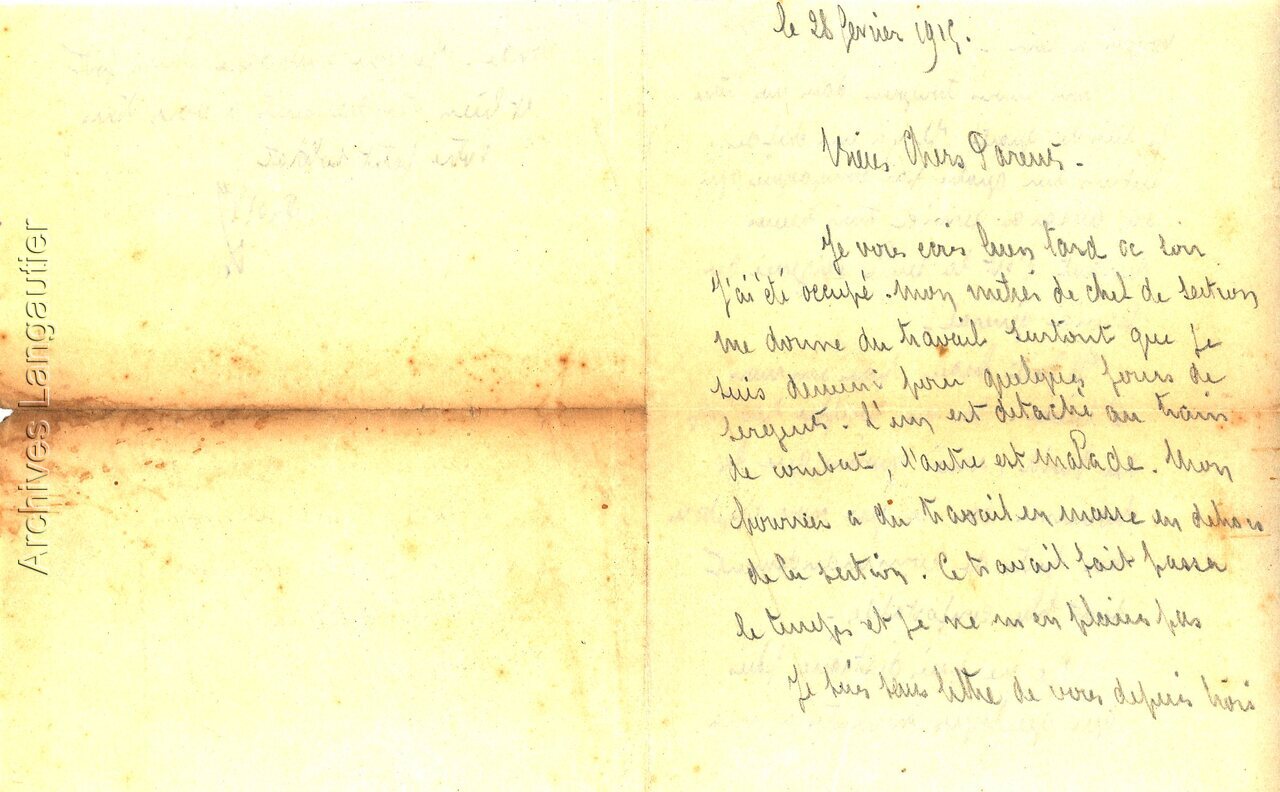 le 28 février 1915.
Chers Parents.
Je vous ecris bien tard ce soir
J'ai été occupé. Mon métier de chef de section
me donne du travail surtout que je
suis demuni pour quelques jours de
sergents. L'un est détaché au train
de combat, l'autre est malade. Mon
fourrier a du travail en masse en dehors
de la section. Ce travail fait passer
le temps et je ne m en plains pas
Je suis sans lettre de vous depuis trois
Archives Langautier